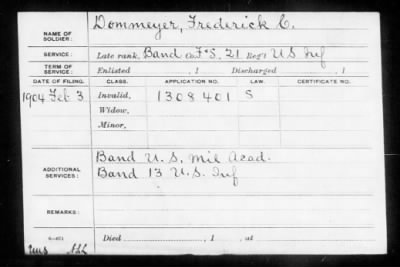 NAME OF SOLDIER: Dommeyer, Frederick C.
SERVICE: Late rank, Band Co. F&S, 21 Reg't U S Inf
TERM OF SERVICE: Enlisted , 1 Discharged , 1
DATE OF FILING. CLASS. APPLICATION NO. LAW. CERTIFICATE NO.
1904 Feb 3 Invalid, 1308401 S
Widow,
Minor,
ADDITIONAL SERVICES: Band U. S. Mil Acad.
Band 13 U.S. Inf
REMARKS:
Died , 1 , at